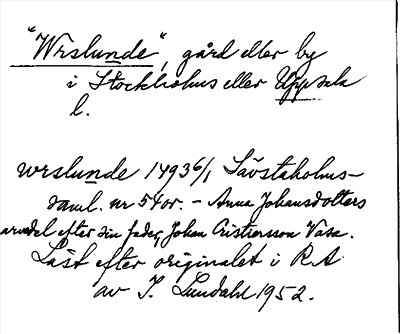 "Wrslunde", gård eller by
i Stockholms eller Uppsala
l.
wrslunde 1493 6/1 Sävstaholms-
saml. nr 54 or. - Anna Johansdotters
arvdel efter sin fader, Johan Cristiernsson Vasa.
Läst efter originalet i RA
av I. Lundahl 1952.